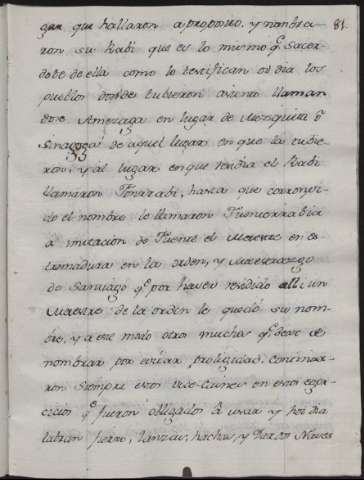 gar que hallaron aproposito, y nombra- 81.
ron su Rabi que es lo mismo q.e Sacer-
dote de ella como lo testifican oi dia los
pueblos donde tubieron asiento llaman
dose Amezaga en lugar de Mezquita ô
Sinagoga de aquel lugar en que la tubie-
ron, y al lugar en que residia el Rabi
llamaron Fonrrabi, hasta que corrompi-
do el nombre le llamaron Fuenterrabia
a imitacion de Fuente el Maestre en es-
tremadura en la orden, y Maestrazgo
de Santiago q.e por haver residido alli un
Maestro de la orden le quedó su nom-
bre, y a este modo otros muchos q.e dexo de
nombrar por evitar prolijidad. Continua-
ron siempre estos en estos exer-
cicios q.e fueron obligados â usar y hoi dia
labran fierro, lanzas, hachas, y Naves